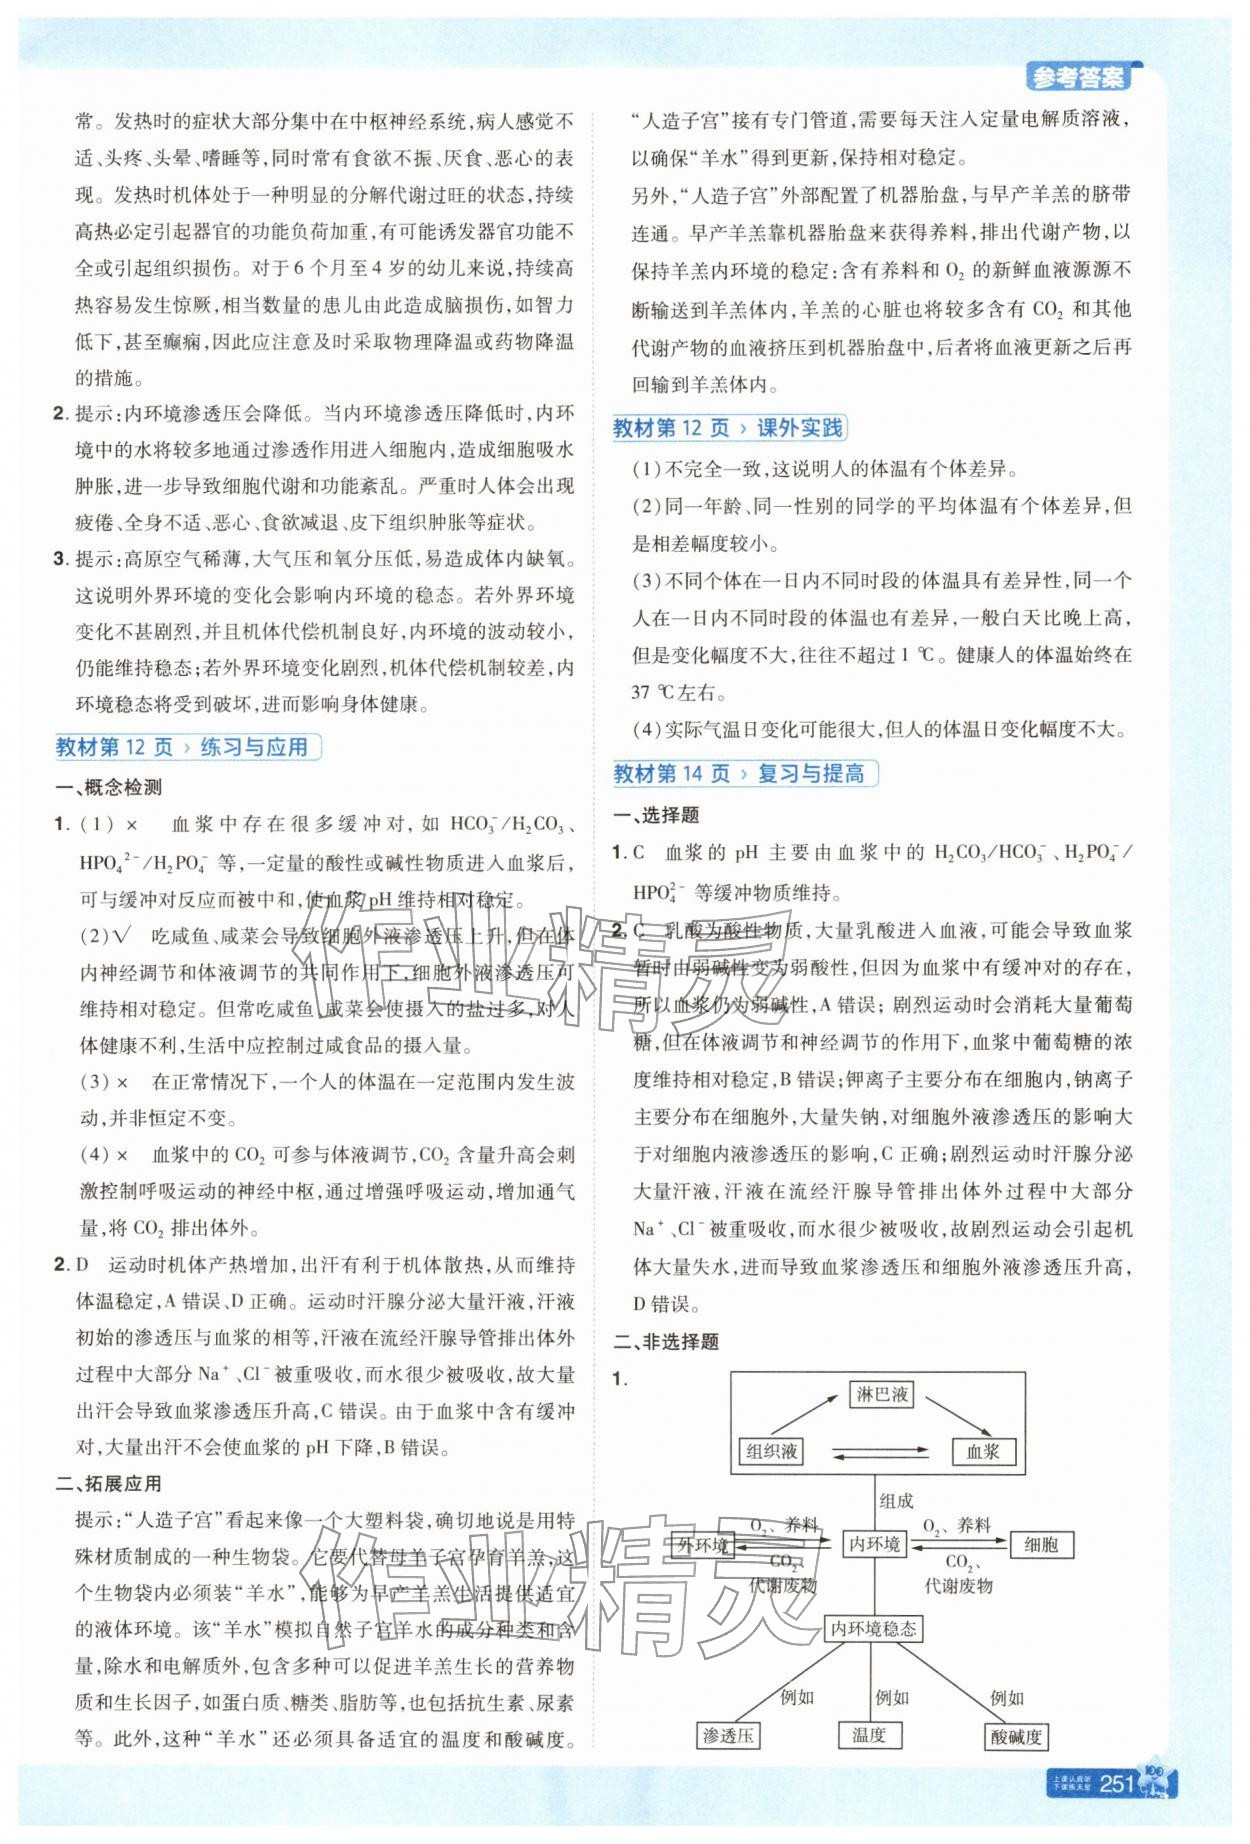 参考答案
常。发热时的症状大部分集中在中枢神经系统,病人感觉不
适、头疼、头晕、嗜睡等,同时常有食欲不振、厌食、恶心的表
现。发热时机体处于一种明显的分解代谢过旺的状态,持续
高热必定引起器官的功能负荷加重,有可能诱发器官功能不
全或引起组织损伤。对于 6 个月至 4 岁的幼儿来说,持续高
热容易发生惊厥,相当数量的患儿由此造成脑损伤,如智力
低下,甚至癫痫,因此应注意及时采取物理降温或药物降温
的措施。
2. 提示:内环境渗透压会降低。当内环境渗透压降低时,内环
境中的水将较多地通过渗透作用进入细胞内,造成细胞吸水
肿胀,进一步导致细胞代谢和功能紊乱。严重时人体会出现
疲倦、全身不适、恶心、食欲减退、皮下组织肿胀等症状。
3. 提示:高原空气稀薄,大气压和氧分压低,易造成体内缺氧。
这说明外界环境的变化会影响内环境的稳态。若外界环境
变化不甚剧烈,并且机体代偿机制良好,内环境的波动较小,
仍能维持稳态;若外界环境变化剧烈,机体代偿机制较差,内
环境稳态将受到破坏,进而影响身体健康。
教材第 12 页 › 练习与应用
一、概念检测
1. (1) × 血浆中存在很多缓冲对,如 HCO₃⁻/H₂CO₃、
HPO₄²⁻/H₂PO₄⁻ 等,一定量的酸性或碱性物质进入血浆后,
可与缓冲对反应而被中和,使血浆 pH 维持相对稳定。
(2) √ 吃咸鱼、咸菜会导致细胞外液渗透压上升,但在体
内神经调节和体液调节的共同作用下,细胞外液渗透压可
维持相对稳定。但常吃咸鱼、咸菜会使摄入的盐过多,对人
体健康不利,生活中应控制过咸食品的摄入量。
(3) × 在正常情况下,一个人的体温在一定范围内发生波
动,并非恒定不变。
(4) × 血浆中的 CO₂ 可参与体液调节,CO₂ 含量升高会刺
激控制呼吸运动的神经中枢,通过增强呼吸运动,增加通气
量,将 CO₂ 排出体外。
2. D 运动时机体产热增加,出汗有利于机体散热,从而维持
体温稳定,A 错误、D 正确。运动时汗腺分泌大量汗液,汗液
初始的渗透压与血浆的相等,汗液在流经汗腺导管排出体外
过程中大部分 Na⁺、Cl⁻被重吸收,而水很少被吸收,故大量
出汗会导致血浆渗透压升高,C 错误。由于血浆中含有缓冲
对,大量出汗不会使血浆的 pH 下降,B 错误。
二、拓展应用
提示:“人造子宫”看起来像一个大塑料袋,确切地说是用特
殊材质制成的一种生物袋。它要代替母羊子宫孕育羊羔,这
个生物袋内必须装“羊水”,能够为早产羊羔生活提供适宜
的液体环境。该“羊水”模拟自然子宫羊水的成分种类和含
量,除水和电解质外,包含多种可以促进羊羔生长的营养物
质和生长因子,如蛋白质、糖类、脂肪等,也包括抗生素、尿素
等。此外,这种“羊水”还必须具备适宜的温度和酸碱度。
“人造子宫”接有专门管道,需要每天注入定量电解质溶液,
以确保“羊水”得到更新,保持相对稳定。
另外,“人造子宫”外部配置了机器胎盘,与早产羊羔的脐带
连通。早产羊羔靠机器胎盘来获得养料,排出代谢产物,以
保持羊羔内环境的稳定:含有养料和 O₂ 的新鲜血液源源不
断输送到羊羔体内,羊羔的心脏也将较多含有 CO₂ 和其他
代谢产物的血液挤压到机器胎盘中,后者将血液更新之后再
回输到羊羔体内。
教材第 12 页 › 课外实践
(1) 不完全一致,这说明人的体温有个体差异。
(2) 同一年龄、同一性别的同学的平均体温有个体差异,但
是相差幅度较小。
(3) 不同个体在一日内不同时段的体温具有差异性,同一个
人在一日内不同时段的体温也有差异,一般白天比晚上高,
但是变化幅度不大,往往不超过 1 ℃。健康人的体温始终在
37 ℃左右。
(4) 实际气温日变化可能很大,但人的体温日变化幅度不大。
教材第 14 页 › 复习与提高
一、选择题
1. C 血浆的 pH 主要由血浆中的 H₂CO₃/HCO₃⁻、H₂PO₄⁻/
HPO₄²⁻ 等缓冲物质维持。
2. C 乳酸为酸性物质,大量乳酸进入血液,可能会导致血浆
暂时由弱碱性变为弱酸性,但因为血浆中有缓冲对的存在,
所以血浆仍为弱碱性,A 错误;剧烈运动时会消耗大量葡萄
糖,但在体液调节和神经调节的作用下,血浆中葡萄糖的浓
度维持相对稳定,B 错误;钾离子主要分布在细胞内,钠离子
主要分布在细胞外,大量失钠,对细胞外液渗透压的影响大
于对细胞内液渗透压的影响,C 正确;剧烈运动时汗腺分泌
大量汗液,汗液在流经汗腺导管排出体外过程中大部分
Na⁺、Cl⁻被重吸收,而水很少被吸收,故剧烈运动会引起机
体大量失水,进而导致血浆渗透压和细胞外液渗透压升高,
D 错误。
二、非选择题
1.
淋巴液
组织液 血浆
组成
O₂、养料 O₂、养料
外环境 内环境 细胞
CO₂、 CO₂、
代谢废物 代谢废物
内环境稳态
例如 例如 例如
渗透压 温度 酸碱度
作业精灵
作业精灵
上课认真听
下课练天星
251
100